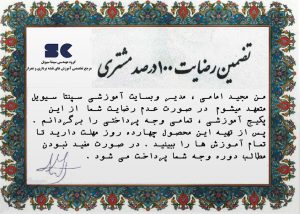 SC
گروه مهندسی سینتا سیویل
مرجع تخصصی آموزش های نقشه برداری و عمران
تضمین رضایت ۱۰۰ درصد مشتری
من مجید امامی ، مدیر وبسایت آموزشی سینتا سیویل
متعهد میشوم در صورت عدم رضایت شما از این
پکیج آموزشی ، تمامی وجه پرداختی را برگردانم .
پس از تهیه این محصول چهارده روز مهلت دارید تا
تمام آموزش ها را ببینید . در صورت مفید نبودن
مطالب دوره وجه شما پرداخت می شود .